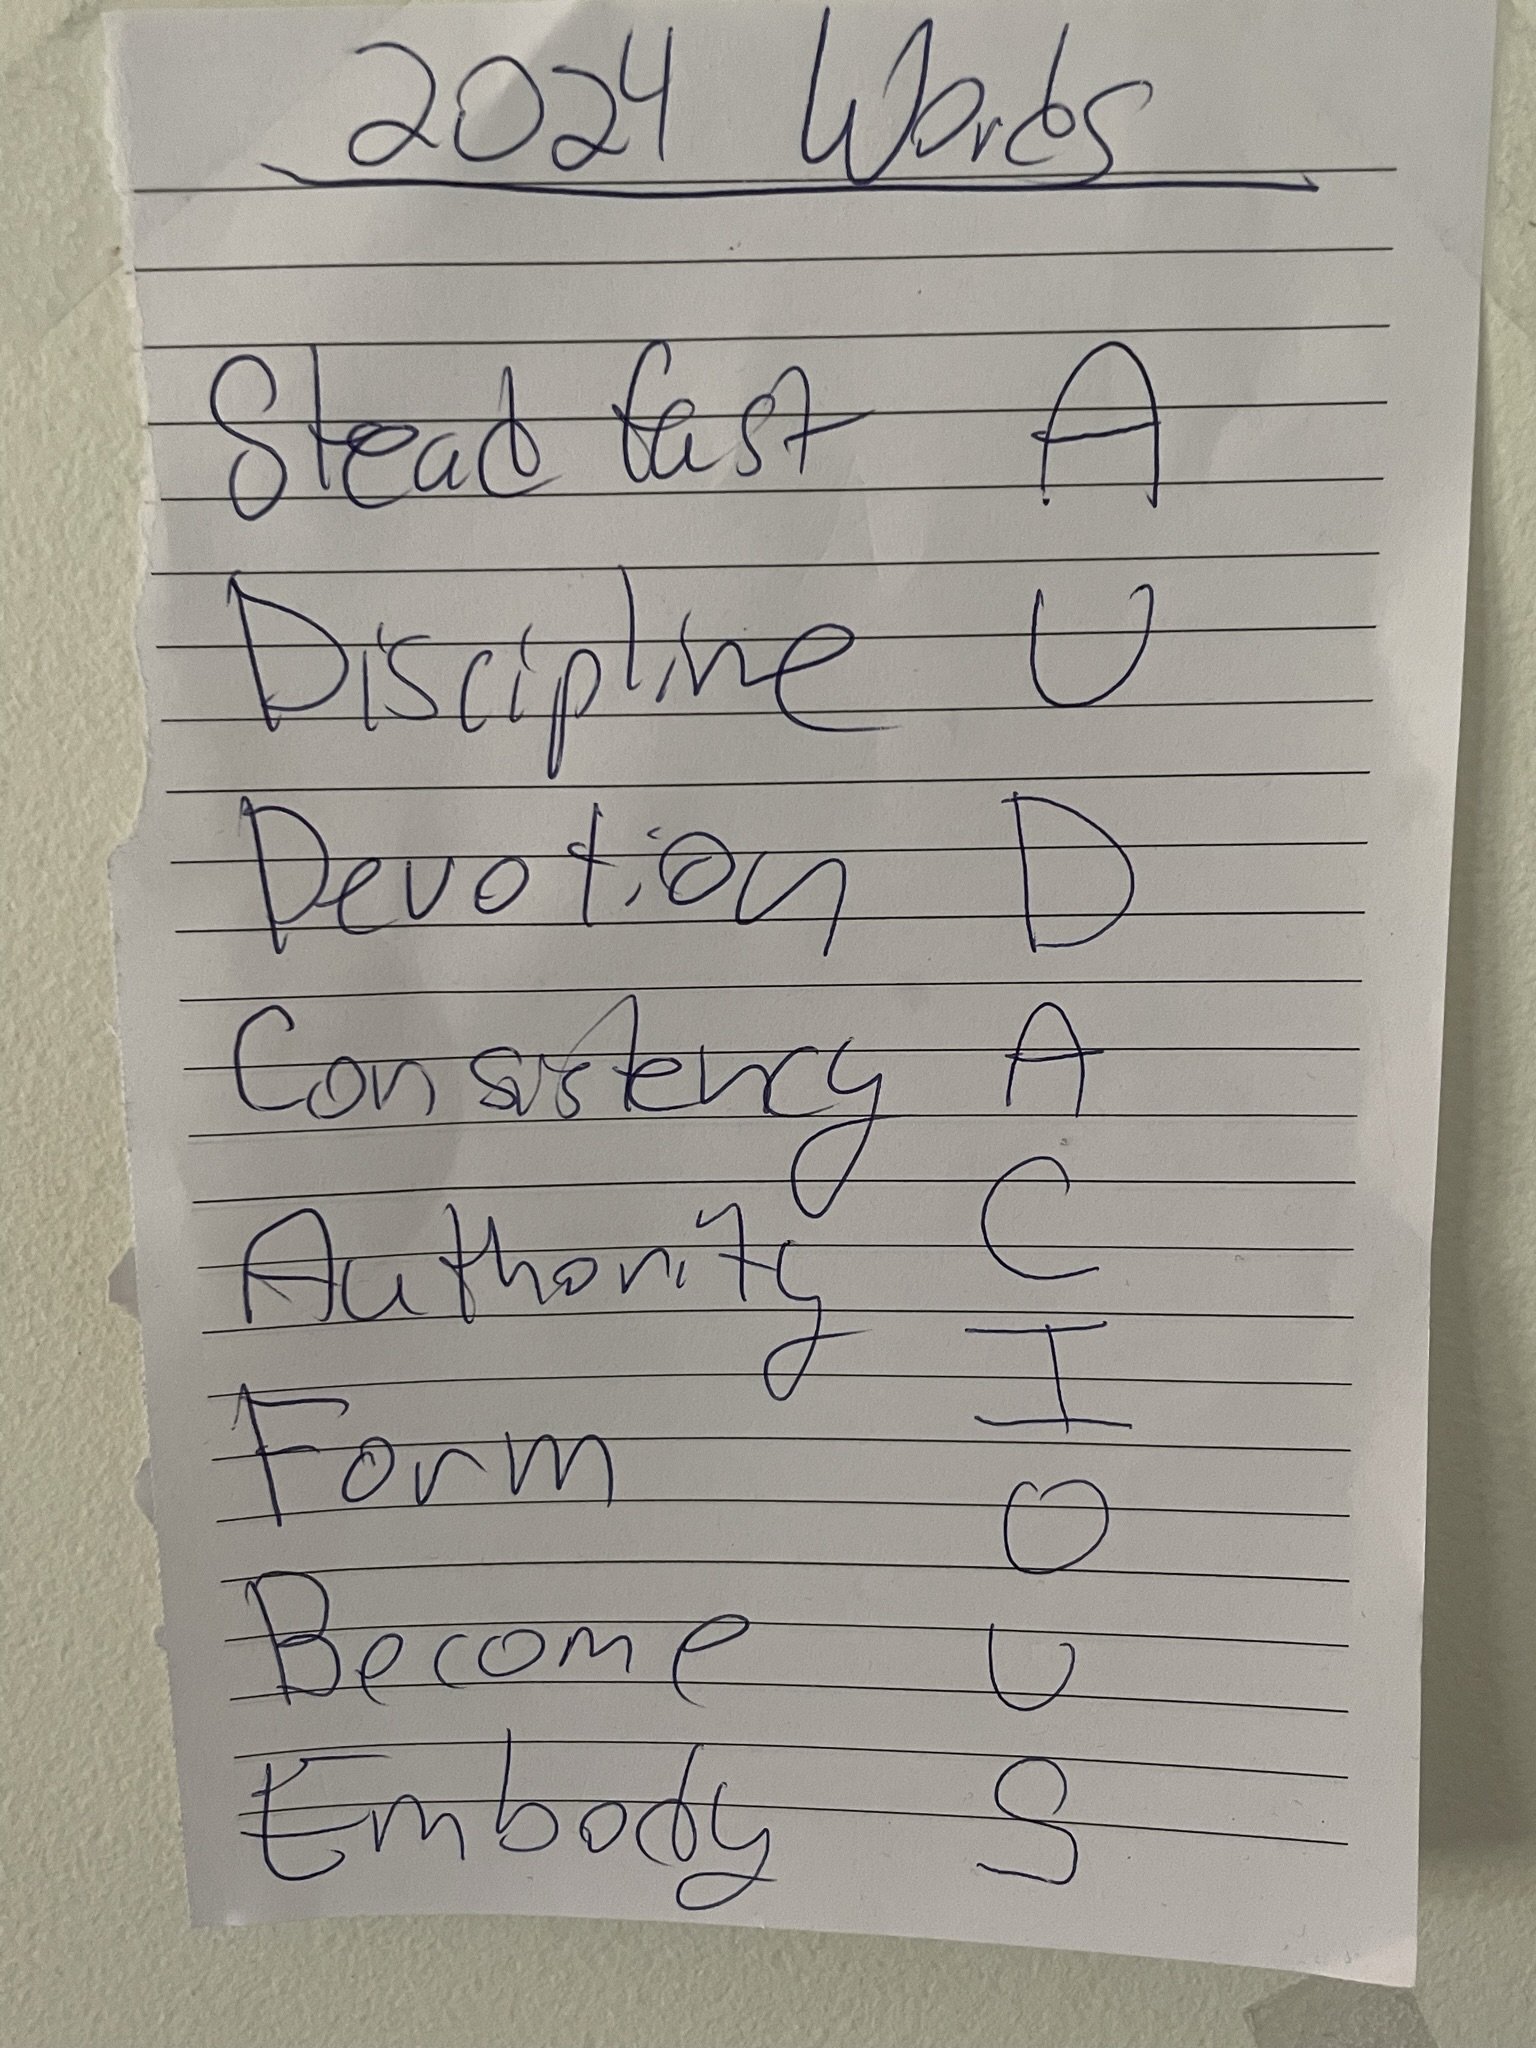 2024 Words
Steadfast
Discipline
Devotion
Consistency
Authority
Form
Become
Embody
A
U
D
A
C
I
O
U
S